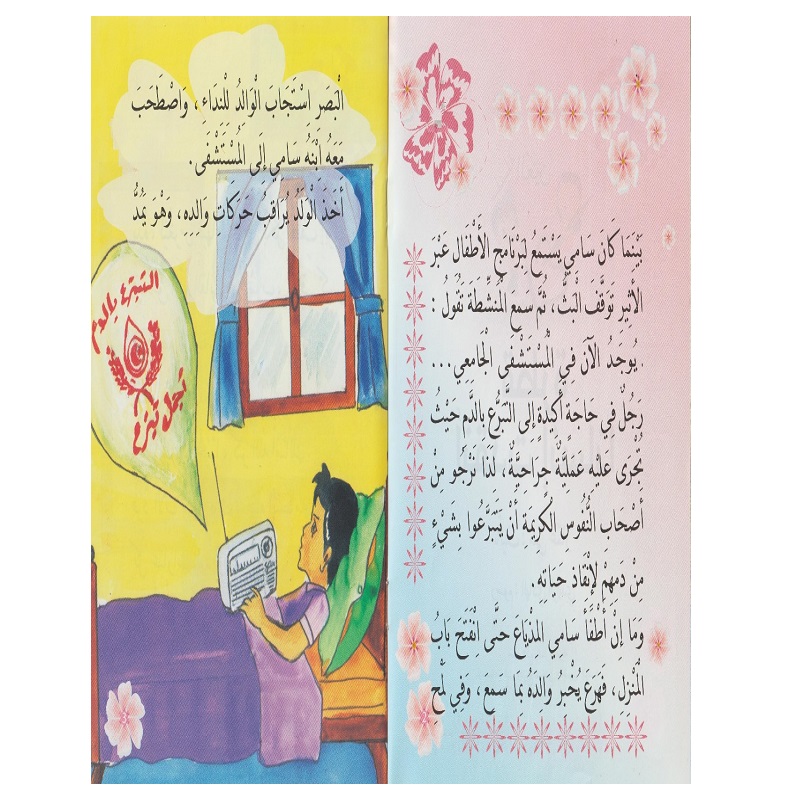 بَيْنَمَا كَانَ سَامِي يَسْتَمِعُ لِبَرْنَامَجِ الأَطْفَالِ عَبْرَ
الأَثِيرِ تَوَقَّفَ الْبَثُّ، ثُمَّ سَمِعَ الْمُنَشِّطَةَ تَقُولُ :
. يُوجَدُ الآنَ فِي الْمُسْتَشْفَى الْجَامِعِي...
رَجُلٌ فِي حَاجَةٍ أَكِيدَةٍ إِلَى التَّبَرُّعِ بِالدَّمِ حَيْثُ
تُجْرَى عَلَيْهِ عَمَلِيَّةٌ جِرَاحِيَّةٌ، لَذَا نَرْجُو مِنْ
أَصْحَابِ النُّفُوسِ الْكَرِيمَةِ أَنْ يَتَبَرَّعُوا بِشَيْءٍ
مِنْ دَمِهِمْ لإِنْقَاذِ حَيَاتِهِ.
وَمَا إِنْ أَطْفَأَ سَامِي الْمِذْيَاعَ حَتَّى انْفَتَحَ بَابُ
الْمَنْزِلِ، فَهَرَعَ يُخْبِرُ وَالِدَهُ بِمَا سَمِعَ، وَفِي لَمْحِ
الْبَصَرِ اِسْتَجَابَ الْوَالِدُ لِلْنِدَاءِ، وَاصْطَحَبَ
مَعَهُ اِبْنَهُ سَامِي إِلَى الْمُسْتَشْفَى.
أَخَذَ الْوَلَدُ يُرَاقِبُ حَرَكَاتِ وَالِدِهِ، وَهُوَ يَمُدُّ
التبرع بالدم